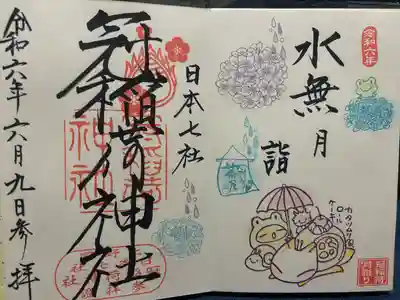 令和六年
水無月
詣
カタツムリ風
ロール
ケーキ
日本七社
冠稲荷神社
令和六年六月九日参拝